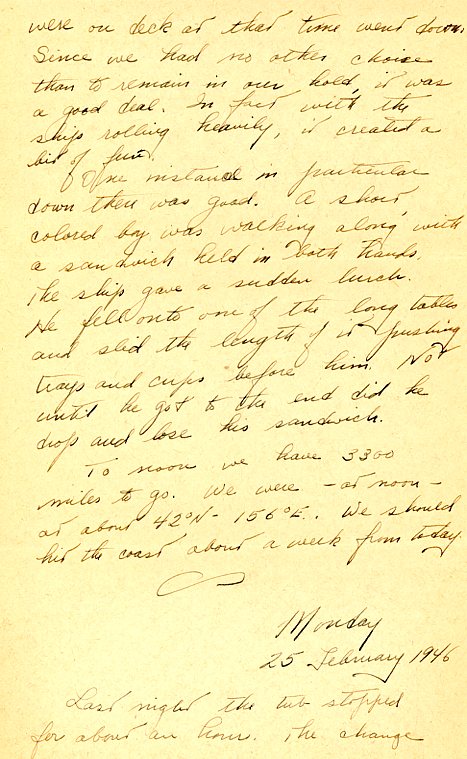 were on deck at that time went down.
Since we had no other choice
than to remain in our hold, it was
a good deal. In fact with the
ship rolling heavily, it created a
bit of fun.
One instance in particular
down there was good. A short
colored boy was walking along with
a sandwich held in both hands.
The ship gave a sudden lurch.
He fell onto one of the long tables
and slid the length of it pushing
trays and cups before him. Not
until he got to the end did he
drop and lose his sandwich.
To noon we have 3300
miles to go. We were - at noon -
at about 42°N - 156°E. We should
hit the coast about a week from today.
Monday
25 February 1946
Last night the tub stopped
for about an hour. The change